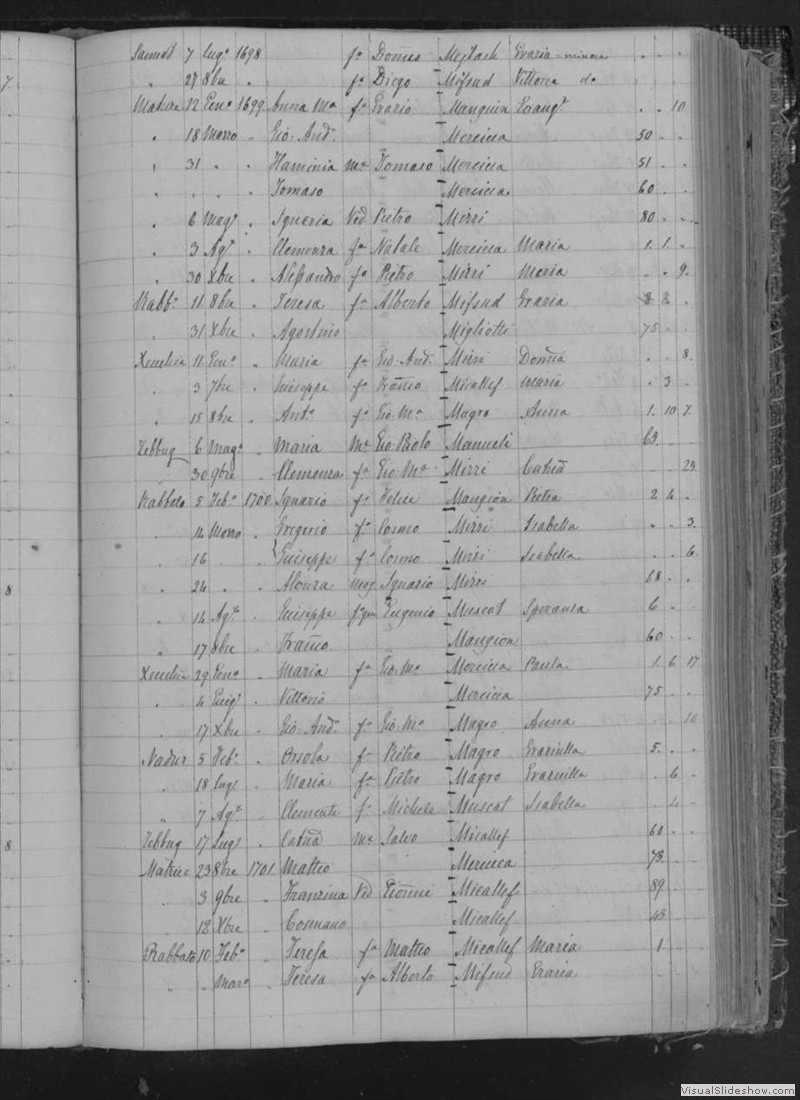 7
8
8
Sannat 7 Lug.o 1698 f.a Dom.co Mejlach Grazia - minora
" 27 8bre f.a Diego Mifsud Vittoria do
Matrice 12 Gen.o 1699 Anna M.a f.a Grazio Manguin Evang.a . . 10
" 18 Marzo " Gio. And.a Mercieca 50 . .
" 31 " " Flaminia M.e Tomaso Mercieca 51 . .
" " " Tomaso Mercieca 60 . .
" 6 Mag.o " Ignazia Ved Pietro Mizzi 80 . .
" 3 Ag.o " Clemenza f.a Natale Mercieca Maria 1. 1. .
" 30 Xbre " Alessandro f.o Pietro Mizzi Maria . . 9.
Rabb.o 11 8bre " Teresa f.a Alberto Mifsud Grazia 2 . .
" 31 Xbre " Agostino Migliotti 75 . .
Xeuchia 11 Gen.o " Maria f.a Gio. And. Mizzi . . 8.
" 3 7bre " Giuseppe f.o Micallef Maria . 3 .
" 15 8bre " Ant.o f.o Gio. M.a Magro Anna 1. 10 7.
Zebbug 6 Mag.o " Maria M.e Gio. Paolo Manueli
" 30 9bre " Clemenza f.a Gio. M.a Mizzi 23
Rabbato 5 Feb.o 1700 Ignazio f.o Felice Mangion Pietra 2 4 .
" 14 Marzo " Gregorio f.o Cosmo Mizzi Isabella . . 3.
" 16 " " Giuseppe f.o Cosmo Mizzi Isabella . . 6.
" 24 " " Alonza mog Ignazio Mizzi 68 . .
" 14 Ag.o " Giuseppe Eugenio Muscat Speranza 6 . .
" 17 8bre " Mangion 60 . .
Xeuchia 29 Gen.o " Maria f.a Gio. M.a Mercieca Paula 1. 6 17
" 4 Giug.o " Vittorio Mercieca 75 . .
" 17 Xbre " Gio. And. f.o Gio. M.a Magro Anna . . 10
Nadur 5 Feb.o " Orsola f.a Pietro Magro Graziulla 5. . .
" 18 Lug.o " Maria f.a Pietro Magro Graziulla . 6 .
" 7 Ag.o " Clemente f.o Michele Muscat Isabella . 4 .
Zebbug 17 Lug.o " M.e Salvo Micallef 60 . .
Matrice 23 8bre 1701 Matteo Mercieca 73. .
" 3 9bre " Franzina Ved Micallef 89 .
" 12 Xbre " Cosmano Micallef 45 .
Rabbato 10 Feb.o " Teresa f.a Matteo Micallef Maria 1 . .
" . Mar.o " Teresa f.a Alberto Mifsud Grazia
VisualSlideshow.com